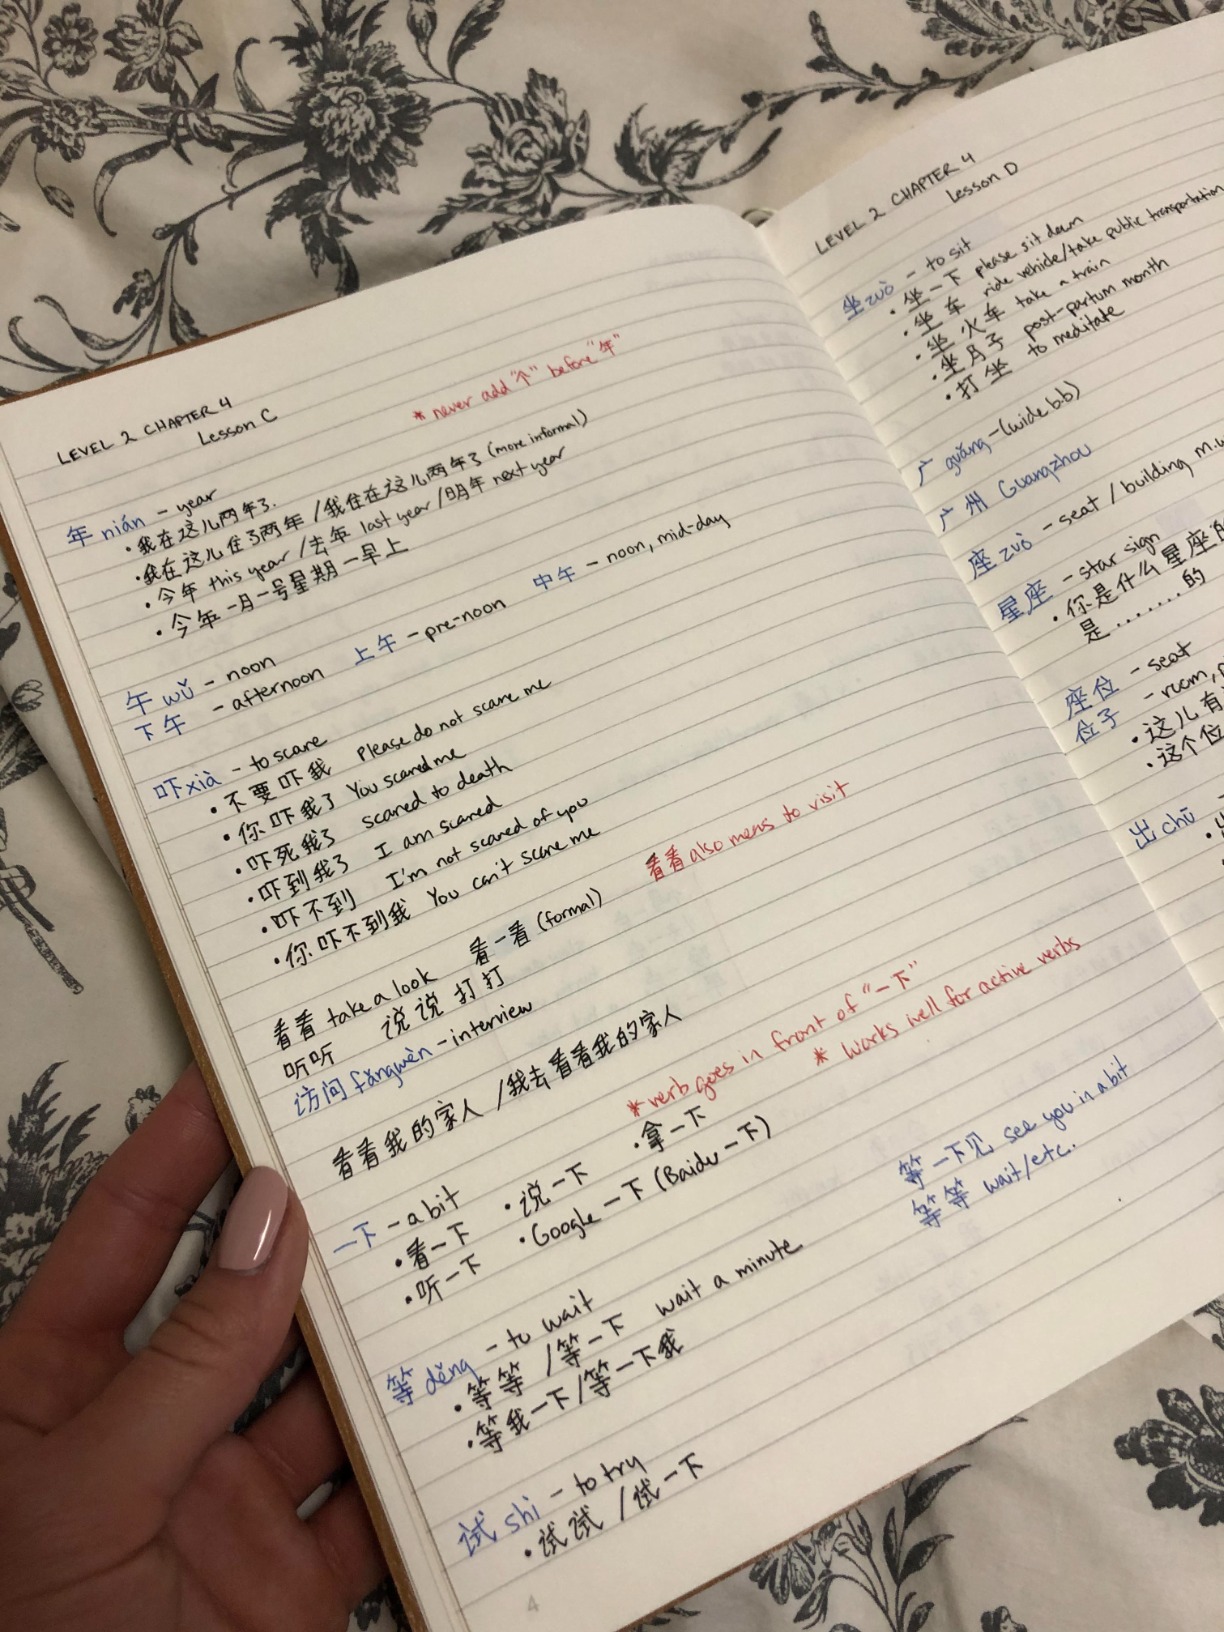 LEVEL 2 CHAPTER 4
Lesson C
* never add "个" before "年"
年 nián - year
• 我在这儿两年了.
• 我在这儿住了两年 / 我住在这儿两年了 (more informal)
• 今年 this year / 去年 last year / 明年 next year
• 今年一月一号星期一早上
午 wǔ - noon
下午 - afternoon 上午 - pre-noon 中午 - noon, mid-day
吓 xià - to scare
• 不要吓我 Please do not scare me
• 你吓我了 You scared me
• 吓死我了 scared to death
• 吓到我了 I am scared
• 吓不到 I'm not scared of you
• 你吓不到我 You can't scare me
看看 take a look 看一看 (formal) 看看 also means to visit
听听 说说 打打
访问 fǎngwèn - interview
看看我的家人 / 我去看看我的家人
* verb goes in front of "一下"
* works well for active verbs
一下 - a bit
• 看一下 • 说一下 • 拿一下
• 听一下 • Google 一下 (Baidu 一下)
等 děng - to wait
• 等等 / 等一下 wait a minute
• 等我一下 / 等一下我
等一下见 see you in a bit
等等 wait/etc.
试 shì - to try
• 试试 / 试一下
4
LEVEL 2 CHAPTER 4
Lesson D
坐 zuò - to sit
• 坐一下 please sit down
• 坐车 ride vehicle/take public transportation
• 坐火车 take a train
• 坐月子 post-partum month
• 打坐 to meditate
广 guǎng - (wide b.b)
广州 Guangzhou
座 zuò - seat / building m.w
星座 - star sign
• 你是什么星座的
是........的
座位 - seat
位子 - room,
• 这儿有
• 这个位
出 chū